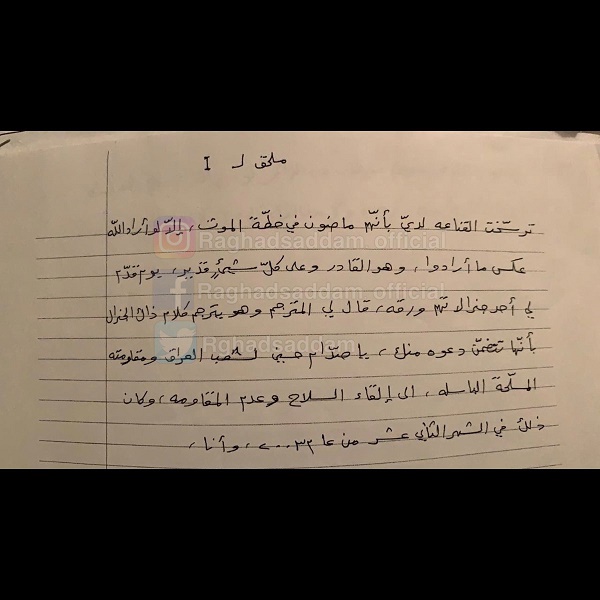 ملحق لـ I
ترسّخت القناعه لديّ بأنّهم ماضون في خطّة الموت، إلّا لو أراد الله
عكس ما أرادوا، وهو القادر وعلى كلّ شيئ قدير، يوم قدّم
لي أحد جنرالاتهم ورقه، قال لي المترجم وهو يترجم كلام ذاك الجنرال
بأنّها تتضمّن دعوه منك، يا صدّام حسين لشعب العراق ومقاومته
المسلّحة الباسله، الى إلقاء السلاح وعدم المقاومه، وكان
ذلك في الشهر الثاني عشر من عام ٢٠٠٣، وأنا،
Raghadsaddam_official
Raghadsaddam_official
Raghadsaddam